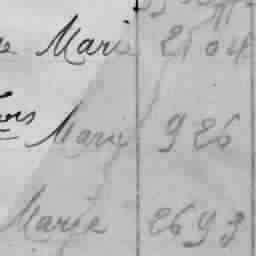 Marie 2104
Marie 926
Marie 2693